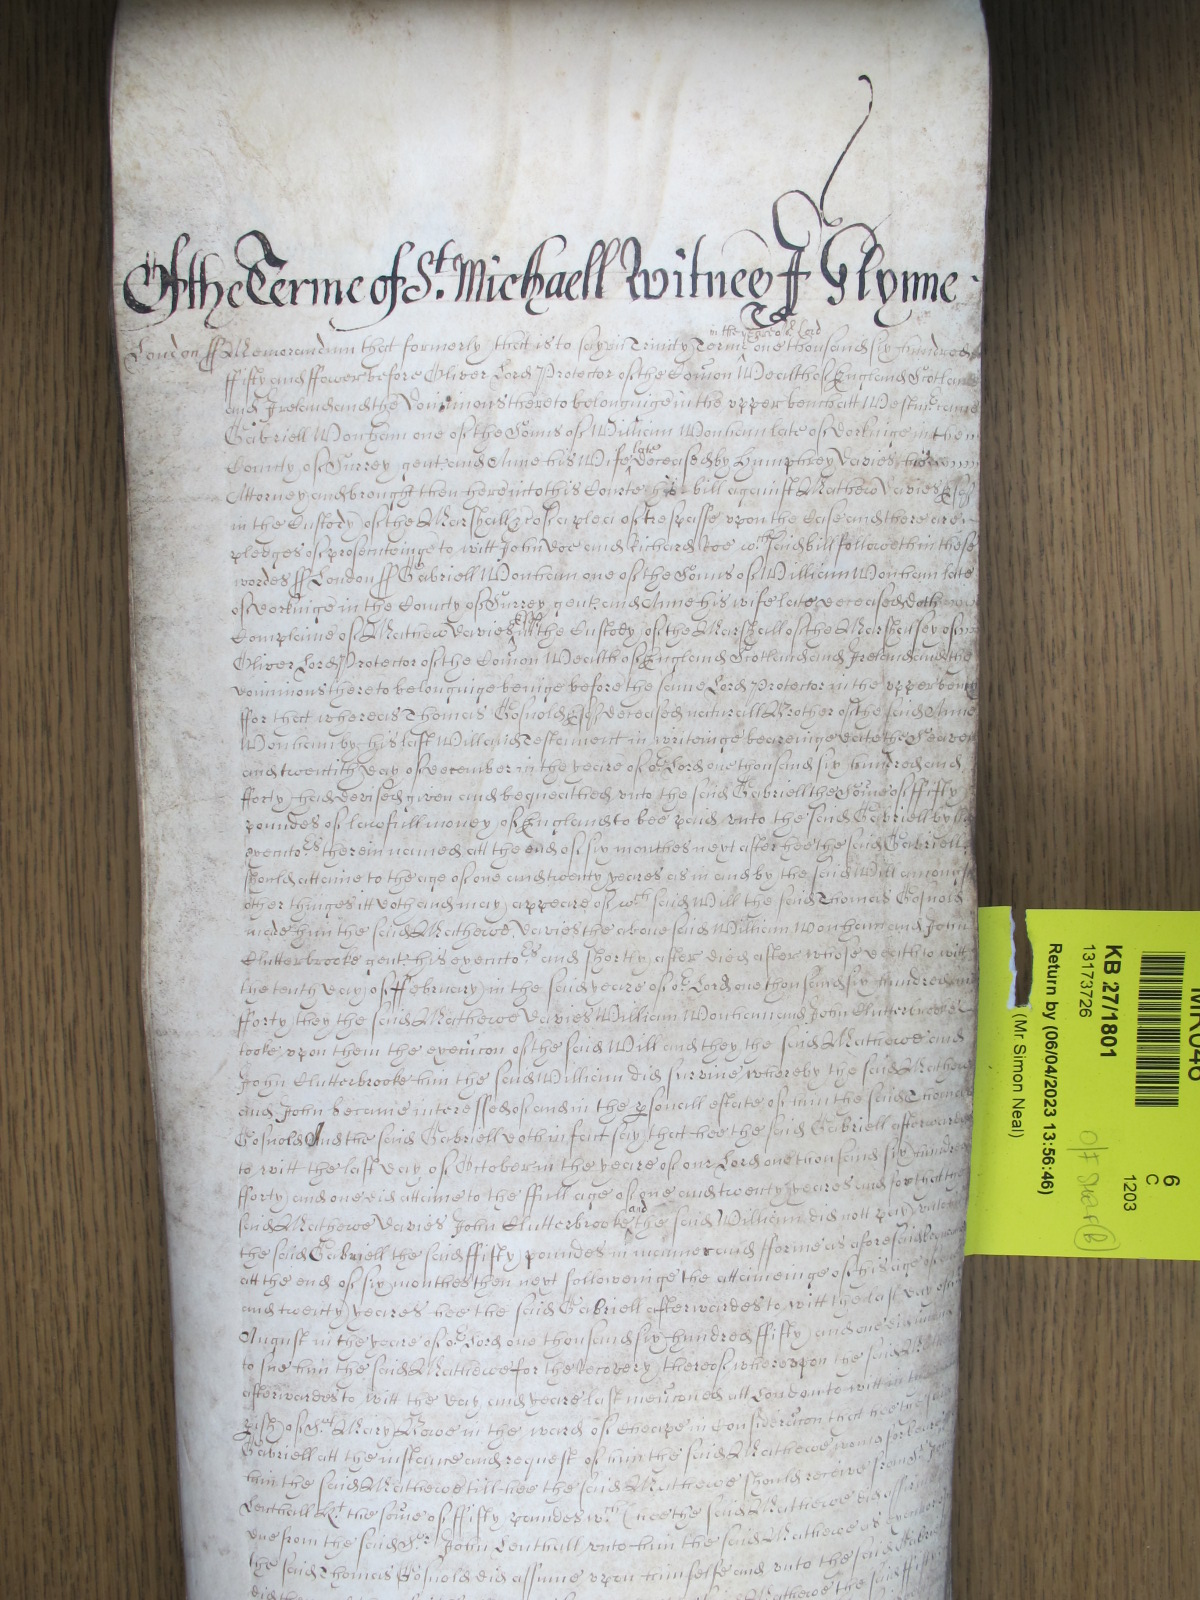 Of the Terme of St. Michaell Witnes Glynne
in the yeare of or Lord
London ss Memorandum that formerly that is to say in Trinity Terme one thousand six hundred
ffifty and ffower before Oliver Lord Protector of the Comon Wealth of England Scotland
and Ireland and the Dominions thereto belonginge in the upper bench att Westminster
Gabriell Wonham one of the Sonns of William Wonham late of Dorkinge in the
County of Surrey gent and Anne his Wife late deceased by Humphrey Davies his
Attorney and brought then here into this Courte his bill against Mathew Davies Esqr
in the Custody of the Marshall &c of a plea of trespasse upon the Case and there are
pledges of prosecuteinge to witt John Doe and Richard Roe wch said bill followeth in these
wordes ss London ss Gabriell Wonham one of the Sonns of William Wonham late
of Dorkinge in the County of Surrey gent and Anne his wife late deceased doth
Complaine of Mathew Davies Esqr in the Custody of the Marshall of the Marshalsey of
Oliver Lord Protector of the Comon Wealth of England Scotland and Ireland and the
dominions thereto belonginge beinge before the same Lord Protector in the upper bench
ffor that whereas Thomas Gosnold Esqr deceased naturall Brother of the said Anne
Wonham by his last Will and Testament in writeinge beareinge date the Seaven
and twentith day of December in the yeare of or Lord one thousand six hundred and
fforty had devised given and bequeathed unto the said Gabriell the Some of ffifty
poundes of lawfull money of England to bee paid unto the said Gabriell by his
executors therein named att the end of six monthes next after hee the said Gabriell
should attaine to the age of one and twenty yeares as in and by the said Will amongst
other thinges itt doth and may appeare of wch said Will the said Thomas Gosnold
made him the said Mathewe Davies the above said William Wonham and John
Clutterbrooke gent his executors and shortly after died after whose death to witt
the tenth day of ffebruary in the said yeare of or Lord one thousand six hundred and
fforty they the said Mathewe Davies William Wonham and John Clutterbrooke
tooke upon them the execucon of the said Will and they the said Mathewe and
John Clutterbrooke him the said William did survive whereby the said Mathew
and John became interessed of and in the psonall estate of him the said Thomas
Gosnold And the said Gabriell doth in fact say that hee the said Gabriell afterwardes
to witt the last day of October in the yeare of our Lord one thousand six hundred
fforty and one did attaine to the ffull age of one and twenty yeares and for that the
said Mathewe Davies John Clutterbrooke and the said William did nott pay unto
the said Gabriell the said ffifty poundes in manner and fforme as aforesaid
att the end of six monthes then next followeinge the attaineinge of his age of
and twenty yeares hee the said Gabriell afterwardes to witt the last day of
August in the yeare of or Lord one thousand six hundred ffifty and one did
to sue him the said Mathewe for the recovery thereof whereupon the said
afterwardes to witt the day and yeare last menconed att London to witt in the
pish of St Mary Bowe in the ward of Cheape in Consideracon that hee the said
Gabriell att the instance and request of him the said Mathewe would forbeare
him the said Mathewe till hee the said Mathewe should receive from Sr John
Lenthall Kt the some of ffifty poundes wch hee the said Mathewe did affirme
due from the said Sr John Lenthall unto him the said Mathewe as executor
the said Thomas Gosnold did assume upon himselfe and unto the said
MR046
KB 27/1801
13173726
Return by (06/04/2023 13:56:46)
(Mr Simon Neal)
6
C
1203